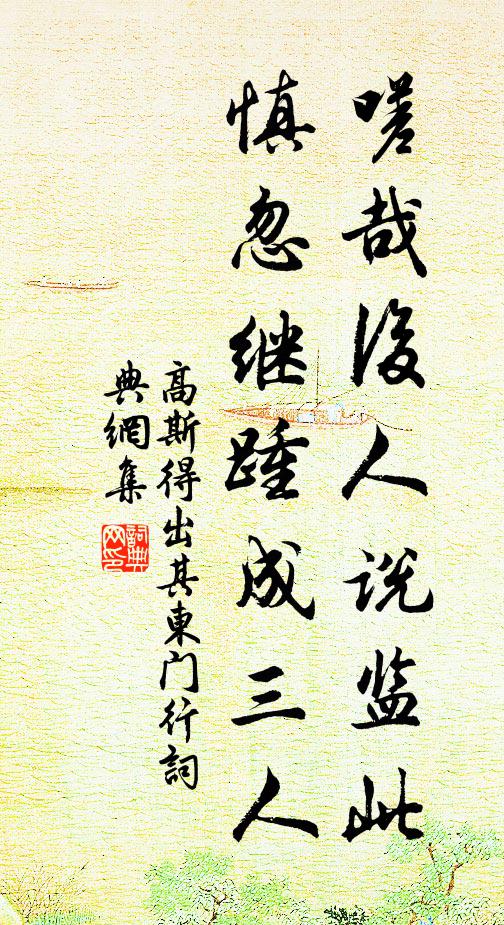 嗟哉後人说监此
慎忽继踵成三人
高斯得出其東门行詞
典網集
詞典
网印